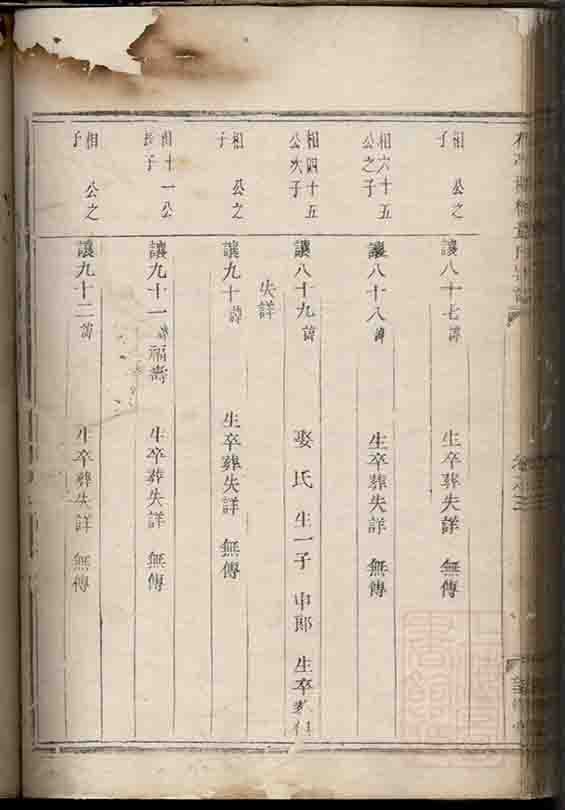 相 公之子
讓八十七諱
生卒葬失詳 無傳
相六十五公之子
讓八十八諱
生卒葬失詳 無傳
相四十五公次子
讓八十九諱
娶 氏 生一子 申郎 生卒葬俱
失詳
相 公之子
讓九十諱
生卒葬失詳 無傳
相十一公長子
讓九十一諱福壽
生卒葬失詳 無傳
相 公之子
讓九十二諱
生卒葬失詳 無傳